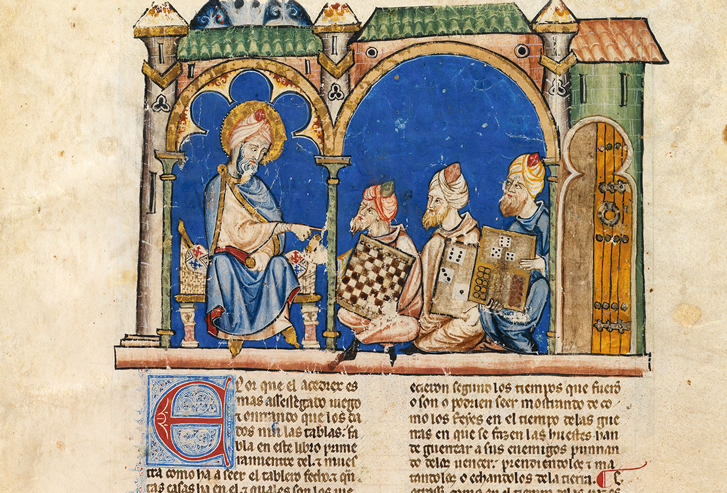 E Por que el acedrex es
mas assessegado iuego
⁊ onrrado que los da
dos nin las tablas. fa
bla en este libro prime
ramientre del. ⁊ mues
tra como ha a seer el tablero fecho. ⁊ q̃n
tas casas ha en el. ⁊ quales son los
ecieron segunt los tiempos que fuerõ
o son o podrien seer mostrando de co
mo los Reyes en el tiempo delas gue
rras en que se fazen las huestes han
de guerrear a sus enemigos punnan
do delos uencer. prendiendolos ⁊ ma
tandolos o echandolos dela tierra.